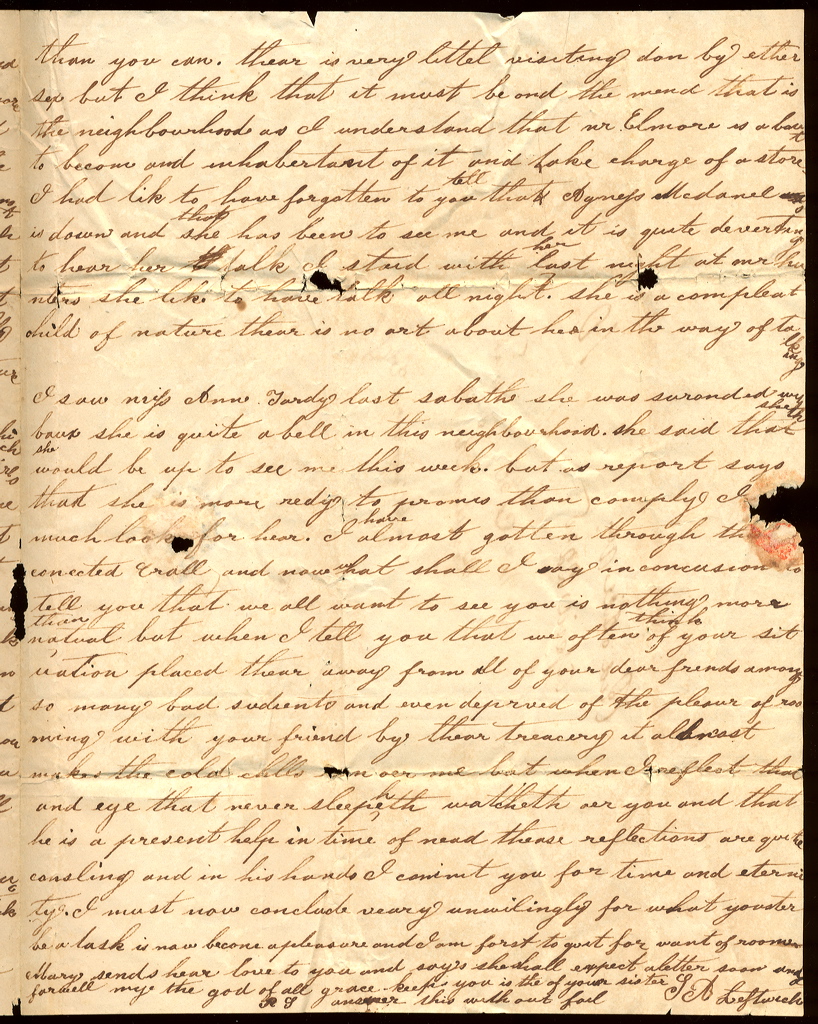 than you can. thear is very littel visiting don by ether
sex but I think that it must be ond the mend that is
the neighbourhood as I understand that mr Elmore is abaut
to becom and inhabertant of it and take charge of a store
I had lik to have forgotten to tell you that Agness Mcdanel
is down and that she has been to see me and it is quite deverting
to hear her talk I staid with her last night at mr hu
nters she like to have talk all night. she is a compleat
child of nature thear is no art about her in the way of ta
lk
ang
I saw miss Anne Tardy last sabath she was surounded with
baux she is quite a bell in this neighbourhood. she said that she
she would be up to see me this week. but as report says
that she is more redig to promis than comply I
much look for hear. I have almost gotten through th
conected Crall and now what shall I say in concusion to
tell you that we all want to see you is nothing more
than natual but when I tell you that we often think of your sit
uation placed thear away from all of your dear frends among
so many bad sudients and even deprved of the plesur of roo
ming with your friend by thear treacery it allmost
makes the cold chlls run oer me but when I reflect that
and eye that never sleepeth watcheth oer you and that
he is a present help in time of nead thease reflections are quite
consling and in his hands I commit you for time and eterni
ty. I must now conclude veary unwilingly for what youster
be a task is now becom a pleasure and I am forst to quit for want of room
Mary sends hear love to you and says she shall expect a letter soon and
farwell may the god of all grace keep you is the of your sister S A Leftwich
P S answer this with out fail